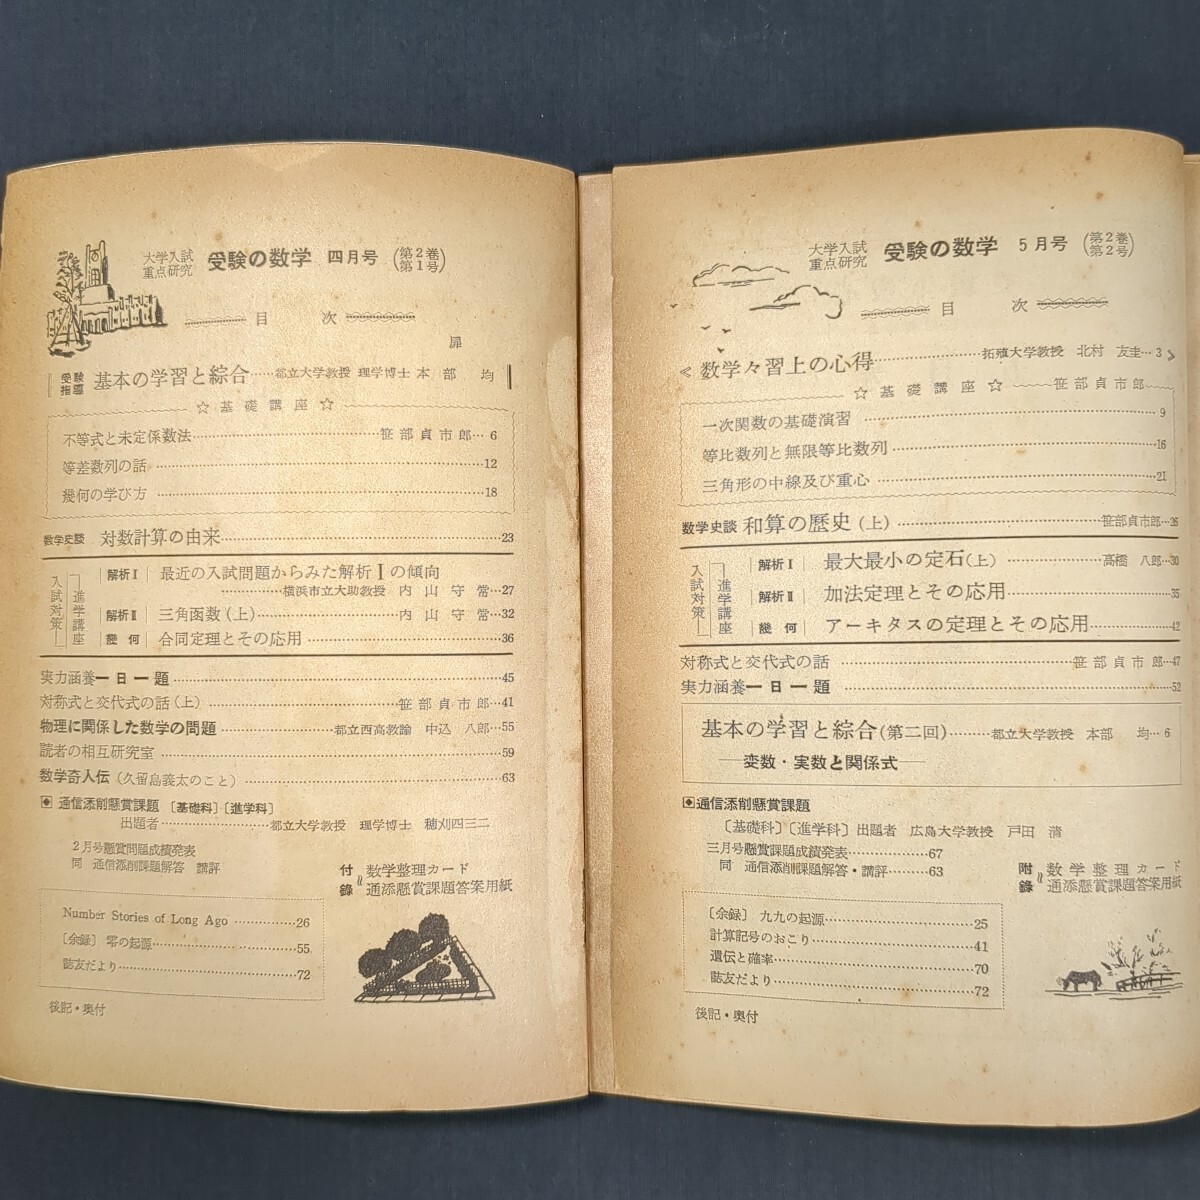 大学入試
重点研究 受験の数学 四月号 (第2巻 第1号)
目 次
扉
受験指導 基本の学習と綜合……都立大学教授 理学博士 本部 均
☆基礎講座☆
不等式と未定係数法……笹部貞市郎…6
等差数列の話……12
幾何の学び方……18
数学史談 対数計算の由来……23
入試対策 進学講座
解析Ⅰ 最近の入試問題からみた解析Ⅰの傾向
……横浜市立大助教授 内山守常…27
解析Ⅱ 三角函数(上)……内山守常…32
幾何 合同定理とその応用……36
実力涵養一日一題……45
対称式と交代式の話(上)……笹部貞市郎…41
物理に関係した数学の問題……都立西高教諭 中込八郎…55
読者の相互研究室……59
数学奇人伝(久留島義太のこと)……63
通信添削懸賞課題〔基礎科〕〔進学科〕
出題者……都立大学教授 理学博士 穂刈四三二
2月号懸賞問題成績発表
同 通信添削課題解答 講評
付録 数学整理カード
通添懸賞課題答案用紙
Number Stories of Long Ago……26
〔余録〕零の起源……55
誌友だより……72
後記・奥付
大学入試
重点研究 受験の数学 5月号 (第2巻 第2号)
目 次
≪数学々習上の心得……拓殖大学教授 北村友圭…3≫
☆基礎講座☆……笹部貞市郎
一次関数の基礎演習……9
等比数列と無限等比数列……16
三角形の中線及び重心……21
数学史談 和算の歴史(上)……笹部貞市郎…26
入試対策 進学講座
解析Ⅰ 最大最小の定石(上)……高橋八郎…30
解析Ⅱ 加法定理とその応用……35
幾何 アーキタスの定理とその応用……42
対称式と交代式の話……笹部貞市郎…47
実力涵養一日一題……52
基本の学習と綜合(第二回)……都立大学教授 本部 均…6
―変数・実数と関係式―
通信添削懸賞課題
〔基礎科〕〔進学科〕出題者 広島大学教授 戸田 清
三月号懸賞課題成績発表……67
同 通信添削課題解答・講評……63
附録 数学整理カード
通添懸賞課題答案用紙
〔余録〕九九の起源……25
計算記号のおこり……41
遺伝と確率……70
誌友だより……72
後記・奥付